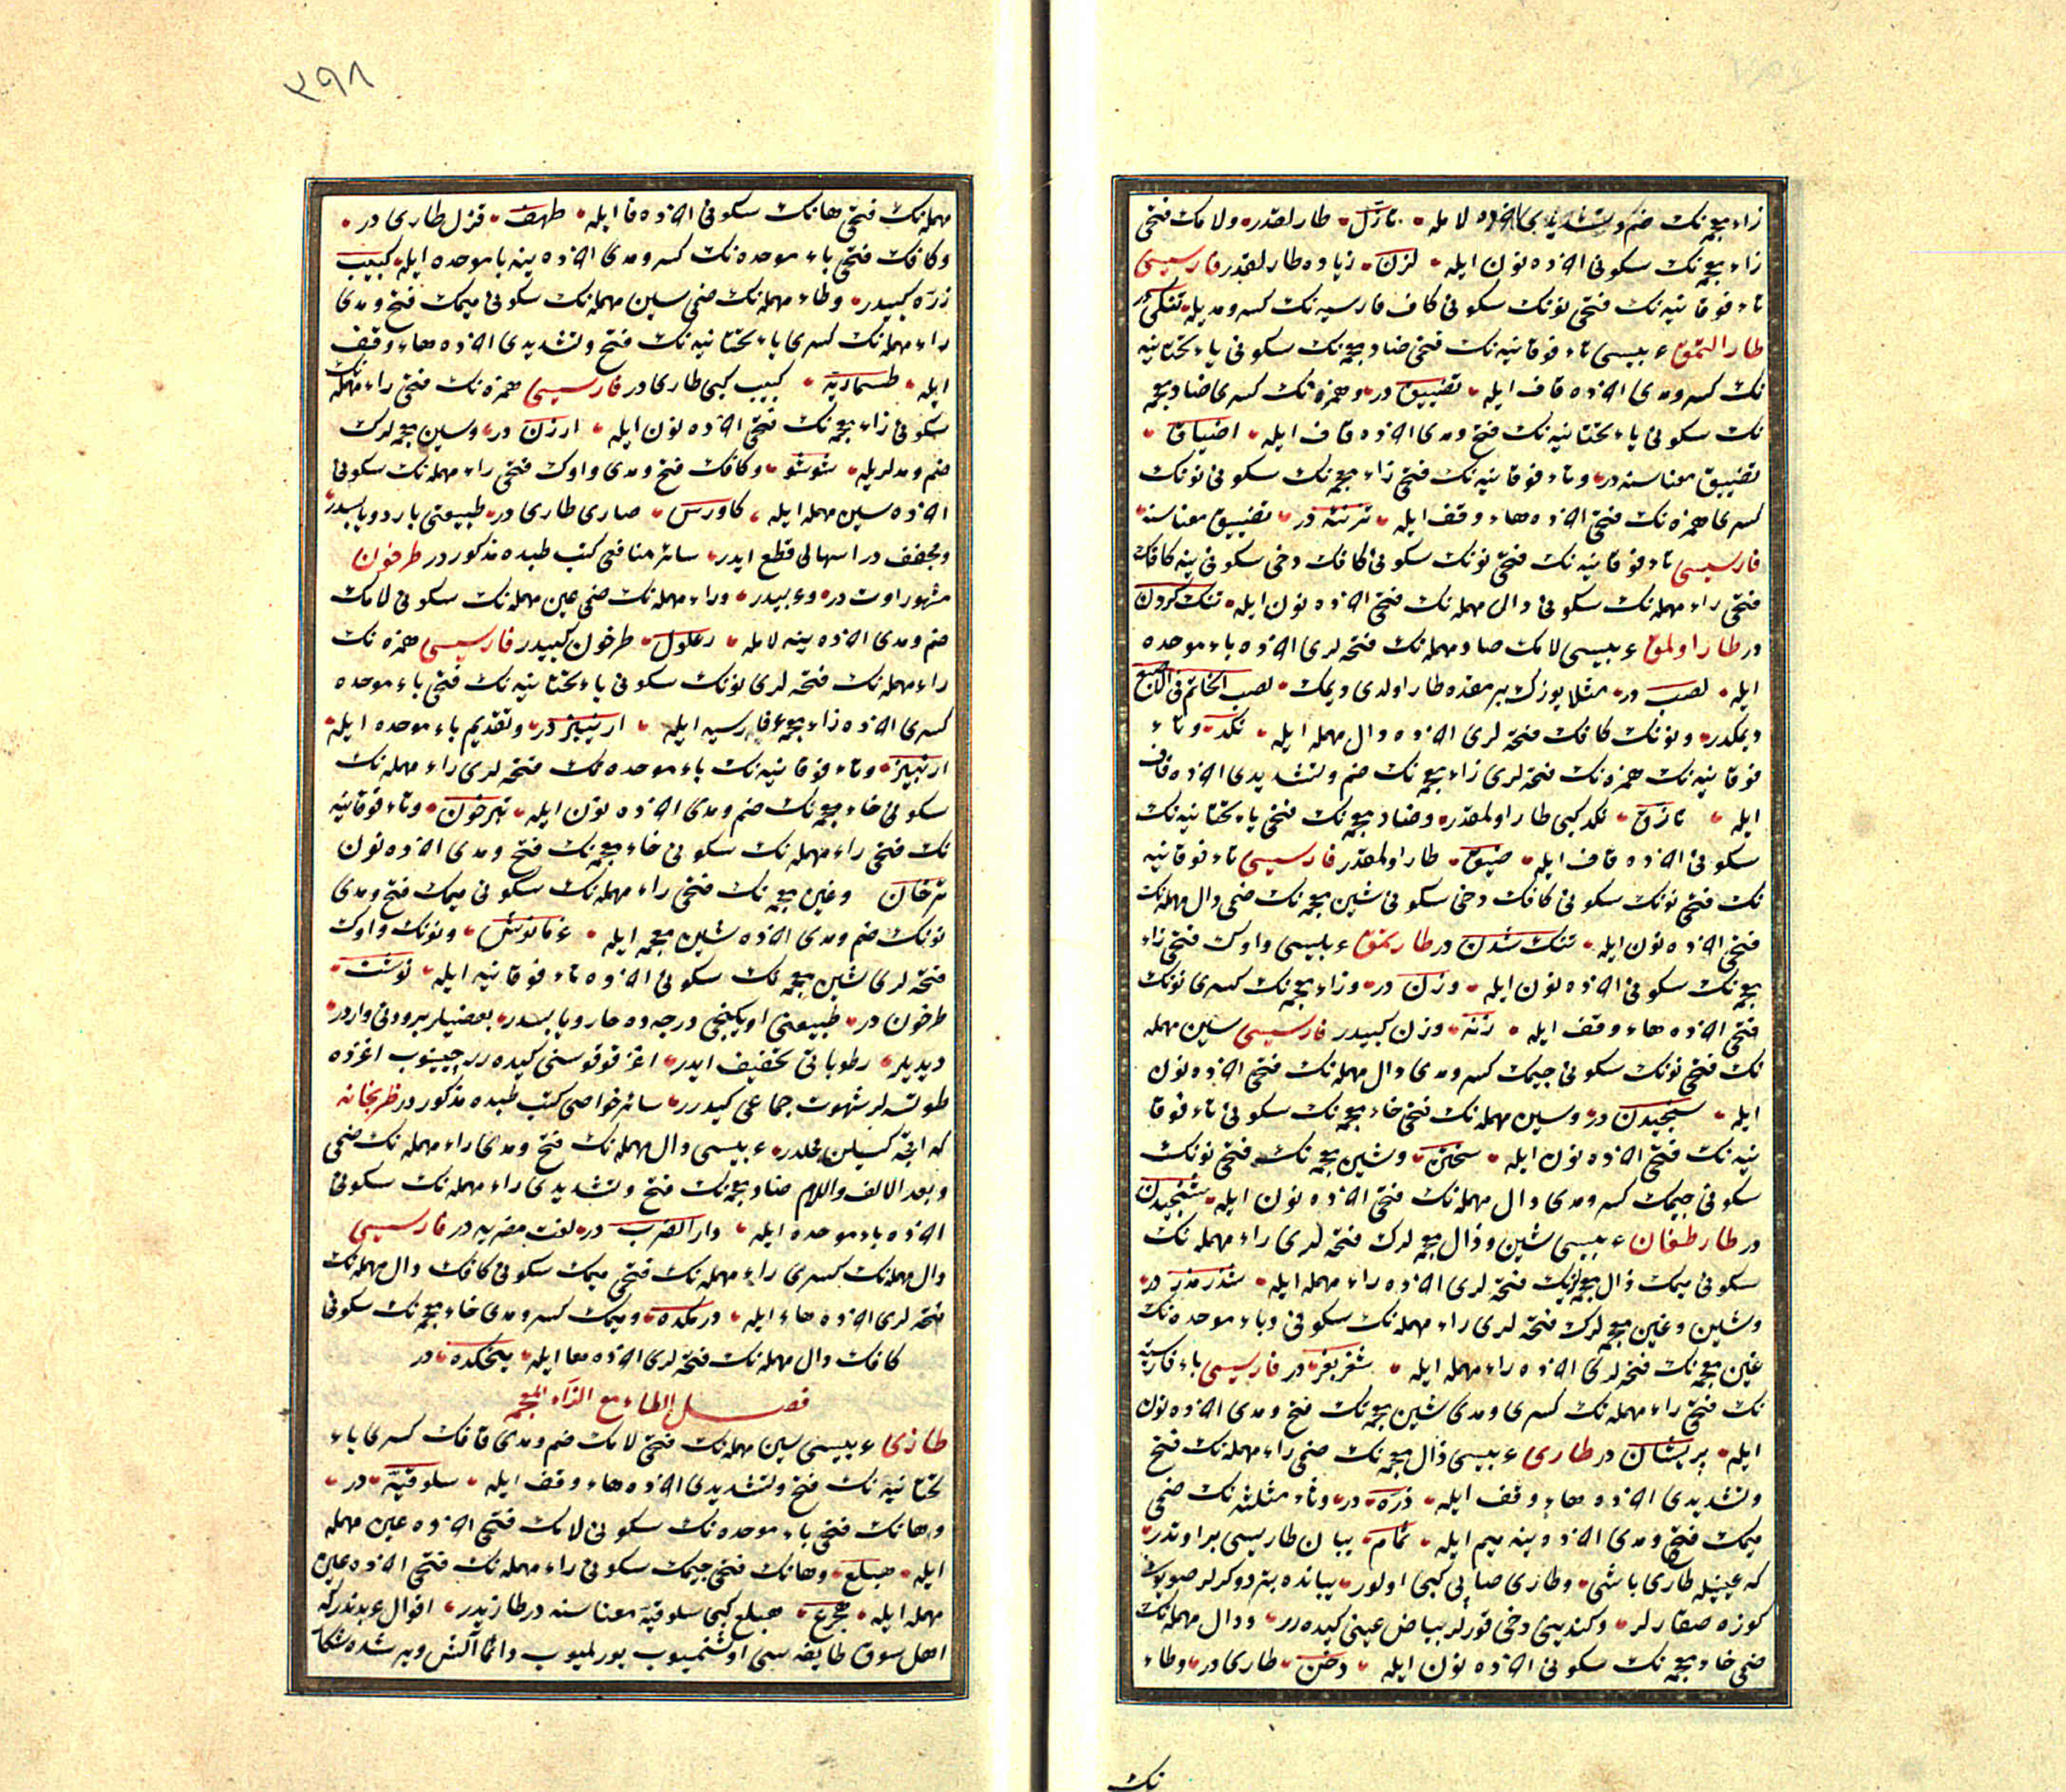 زاء معجمه‌نك ضم و تشدیدی آخرده لامله تازّل طارلقدر ولامك فتحی
زاء معجمه‌نك سكونی آخرده نون ایله لزن زیاده طارلقدر فارسیسی
تاء فوقانیه‌نك فتحی نونك سكونی كاف فارسیه‌نك كسر و مدیله تنكی در
طار ایتمق عربیسی تاء فوقانیه‌نك فتحی ضاد معجمه‌نك سكونی یاء تحتانیه
نك كسر و مدی آخرده قاف ایله تضییق در و همزه‌نك كسری ضاد معجمه
نك سكونی یاء تحتانیه‌نك فتح و مدی آخرده قاف ایله اضیاق
تضییق معناسنه در و تاء فوقانیه‌نك فتحی زاء معجمه‌نك سكونی نونك
كسری همزه‌نك فتحی آخرده هاء وقف ایله تزنئه در تضییق معناسنه
فارسیسی تاء فوقانیه‌نك فتحی نونك سكونی كافك دخی سكونی ینه كافك
فتحی راء مهمله‌نك سكونی دال مهمله‌نك فتحی آخرده نون ایله تنك كردن
در طار اولمق عربیسی لامك صاد مهمله‌نك فتحه‌لری آخرده باء موحده
ایله لصب در مثلا یوزك برمقده طار اولدی دیمك لصب الخاتم فی الاصبع
دیمكدر و نونك كافك فتحه‌لری آخرده دال مهمله ایله نكد و تاء
فوقانیه‌نك همزه‌نك فتحه‌لری زاء معجمه‌نك ضم و تشدیدی آخرده قاف
ایله تازّق نكد كبی طار اولمقدر و ضاد معجمه‌نك فتحی یاء تحتانیه‌نك
سكونی آخرده قاف ایله ضیق طار اولمقدر فارسیسی تاء فوقانیه
نك فتحی نونك سكونی كافك دخی سكونی شین معجمه‌نك ضمی دال مهمله‌نك
فتحی آخرده نون ایله تنك شدن در طارتمق عربیسی واوك فتحی زاء
معجمه‌نك سكونی آخرده نون ایله وزن در و زاء معجمه‌نك كسری نونك
فتحی آخرده هاء وقف ایله زنه وزن كبیدر فارسیسی سین مهمله
نك فتحی نونك سكونی جیمك كسر و مدی دال مهمله‌نك فتحی آخرده نون
ایله سنجیدن در و سین مهمله‌نك فتحی خاء معجمه‌نك سكونی تاء فوقا
نیه‌نك فتحی آخرده نون ایله سختن و شین معجمه‌نك فتحی نونك
سكونی جیمك كسر و مدی دال مهمله‌نك فتحی آخرده نون ایله شنجیدن
در طارطغان عربیسی شین و ذال معجمه‌لرك فتحه‌لری راء مهمله‌نك
سكونی میمك ذال معجمه‌نك فتحه‌لری آخرده راء مهمله ایله شذرمذر در
و شین و غین معجمه‌لرك فتحه‌لری راء مهمله‌نك سكونی و باء موحده‌نك
غین معجمه‌نك فتحه‌لری آخرده راء مهمله ایله شغربغر در فارسیسی باء فارسیه
نك فتحی راء مهمله‌نك كسری و مدی شین معجمه‌نك فتح و مدی آخرده نون
ایله پریشان در طاری عربیسی ذال معجمه‌نك ضمی راء مهمله‌نك فتح
و تشدیدی آخرده هاء وقف ایله ذرّه در و ثاء مثلثه‌نك ضمی
میمك فتح و مدی آخرده ینه میم ایله ثمام یبان طاریسی بر اوتدر
كه عینیله طاری باشی و طاری صاپی كبی اولور یبانده بتر دوكرلر صوینی
كوزه صقارلر و كندیسنی دخی قورلر بیاض عینی كیده‌رر و دال مهمله‌نك
ضمی خاء معجمه‌نك سكونی آخرده نون ایله دخن طاری در و طاء
نك
٣٩٨
مهمله‌نك فتحی هانك سكونی آخرده فا ایله طهف قزل طاری در
و كافك فتحی باء موحده‌نك كسر و مدی آخرده ینه با موحده ایله كبیب
زرّه كبیدر و طاء مهمله‌نك ضمی سین مهمله‌نك سكونی میمك فتح و مدی
راء مهمله‌نك كسری یاء تحتانیه‌نك فتح و تشدیدی آخرده هاء وقف
ایله طسماریّه كبیب كبی طاری در فارسیسی همزه‌نك فتحی راء مهمله‌نك
سكونی زاء معجمه‌نك فتحی آخرده نون ایله ارزن در و سین معجمه‌لرك
ضم و مدلریله شوشو و كافك فتح و مدی واوك فتحی راء مهمله‌نك سكونی
آخرده سین مهمله ایله كاورس صاری طاری در طبیعتی بارد و یابسدر
و مجفف در اسهالی قطع ایدر سائر منافعی كتب طبده مذكور در طرخون
مشهور اوت در و عربیدر و راء مهمله‌نك ضمی عین مهمله‌نك سكونی لامك
ضم و مدی آخرده ینه لامله رعلول طرخون كبیدر فارسیسی همزه‌نك
راء مهمله‌نك فتحه‌لری نونك سكونی یاء تحتانیه‌نك فتحی باء موحده
كسری آخرده زاء معجمهٔ فارسیه ایله ارنیبژ در و تقدیم باء موحده ایله
ارنبیژ و تاء فوقانیه‌نك باء موحده‌نك فتحه‌لری راء مهمله‌نك
سكونی خاء معجمه‌نك ضم و مدی آخرده نون ایله تبرخون و تاء فوقانیه
نك فتحی راء مهمله‌نك سكونی خاء معجمه‌نك فتح و مدی آخرده نون
ترخان و غین معجمه‌نك فتحی راء مهمله‌نك سكونی میمك فتح و مدی
نونك ضم و مدی آخرده شین معجمه ایله غرمانوش و نونك واوك
فتحه‌لری شین معجمه‌نك سكونی آخرده تاء فوقانیه ایله نوشت
طرخون در طبیعتی اوچكنجی درجه‌ده حار و یابسدر بعضیلر برودتی واردر
دیدیلر رطوباتی تخفیف ایدر اغز قوقوسنی كیده‌رر چیینیوب اغزده
طوتسه‌لر شهوت جماعی كیدرر سائر خواصی كتب طبده مذكور در ظربخانه
كه اقچه كسیلن محلدر عربیسی دال مهمله‌نك فتح و مدی راء مهمله‌نك ضمی
و بعد الالف واللام ضاد معجمه‌نك فتح و تشدیدی راء مهمله‌نك سكونی
آخرده باء موحده ایله دار الضرب در لغت مضریه در فارسیسی
دال مهمله‌نك كسری راء مهمله‌نك فتحی میمك سكونی كافك دال مهمله‌نك
فتحه‌لری آخرده هاء ایله درمكده و میمك كسر و مدی خاء معجمه‌نك سكونی
كافك دال مهمله‌نك فتحه‌لری آخرده ها ایله میخكده در
فصل الطاء مع الزاء المعجمه
طازی عربیسی سین مهمله‌نك فتحی لامك ضم و مدی قافك كسری یاء
تحتانیه‌نك فتح و تشدیدی آخرده هاء وقف ایله سلوقیّه در
و هانك فتحی باء موحده‌نك سكونی لامك فتحی آخرده عین مهمله
ایله هبلع و هانك فتحی جیمك سكونی راء مهمله‌نك فتحی آخرده عین
مهمله ایله هجرع هبلع كبی سلوقیّه معناسنه در طازیدر اقوال عربدندر كه
اهل سوق طایفه‌سی اوشنمیوب یورلمیوب دائما آلش ویرشده